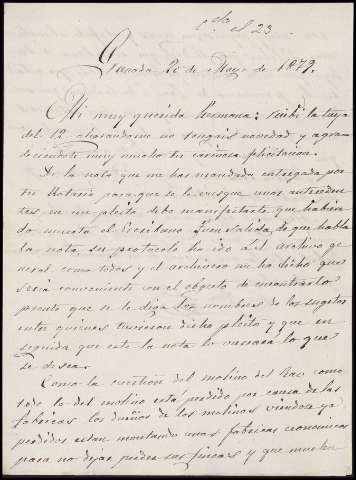 el 23.
Granada 20 de Mayo de 1879.
Mi muy querida hermana: recibí la tuya
del 12 alegrandome no tengais novedad y agra
deciendote muy mucho tu cariñosa felicitacion.
De la nota que me has mandado entregada por
tu Notario para que se le busquen unos anteceden
tes en un pleito debo manifestarte, que habien
do muerto el Escribano Juan Salido, de que habla
la nota, su protocolo ha ido á el archivo ge
neral como todos y el archivero me ha dicho que
sería conveniente con el objeto de encontrarlo
pronto que se le diga los nombres de los sugetos
entre quienes tuvieron dicho pleito y que en
seguida que este la nota lo buscara lo que
se desea.
Como la cuestion del molino del
todo lo del molino está perdido por causa de las
fabricas los dueños de los molinos viendose ya
perdidos estan montando unas fabricas economicas
para no dejar perder sus fincas y que muelen